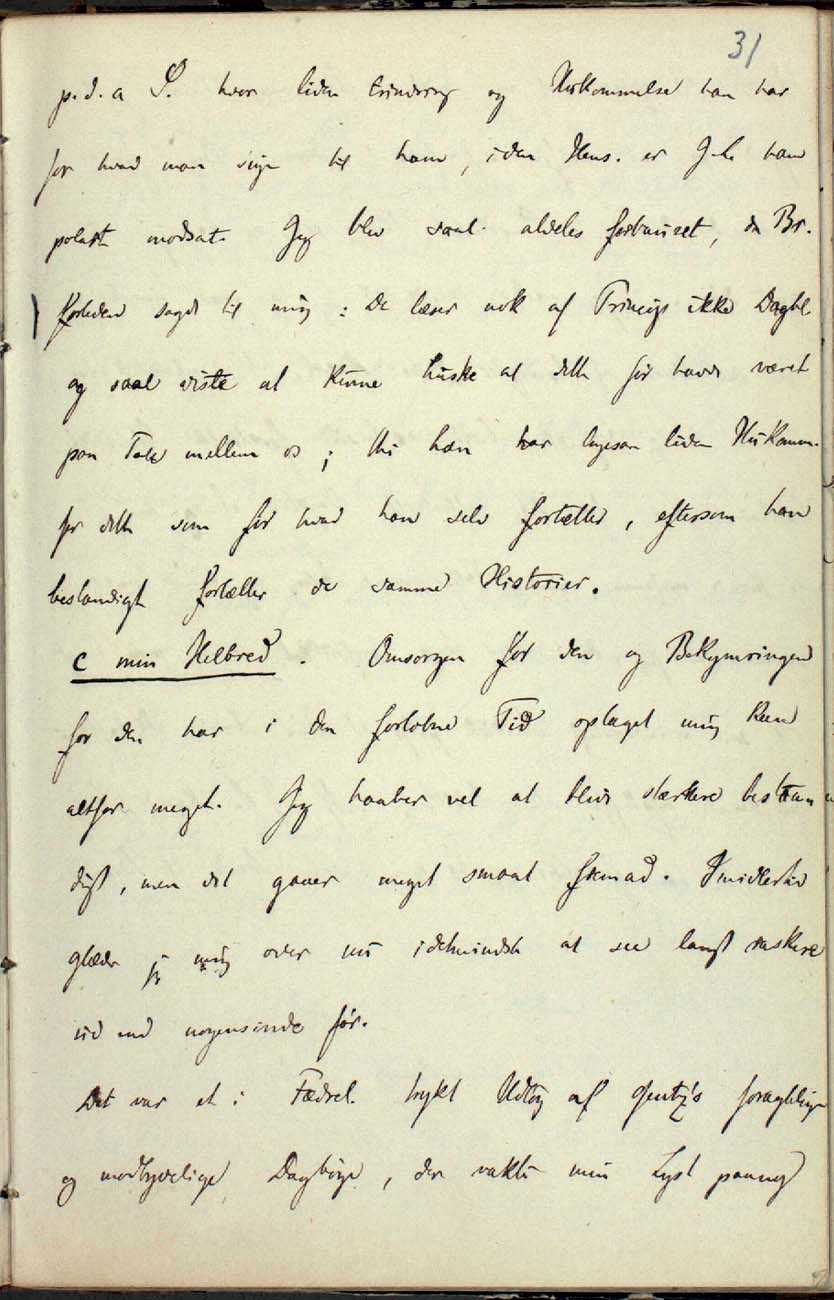 31
p. d. a S. hvor liden Erindring og Hukommelse han har
for hvad man siger til ham, i den Hens. er G-h. ham
polart modsat. Jeg blev saal. aldeles forbauset, da Br.
forleden sagde til mig: De læser nok af Princip ikke Dagbl.
og saal. viste at kunne huske at dette før havde været
paa Tale mellem os; thi han har ligesaa liden Hukomm.
for dette som for hvad han selv fortæller, eftersom han
bestandigt fortæller de samme Historier.
c min Helbred. Omsorgen for den og Bekymringen
for den har i den forløbne Tid optaget mig kun
altfor meget. Jeg haaber vel at blive stærkere bestan
digt, men det gaaer meget smaat fremad. Imidlertid
glæder jeg mig over nu idetmindste at see langt raskere
ud end nogensinde før.
Det var et i Fædrel. trykt Udtog af Gentz's foragtelige
og modbydelige Dagbøger, der vakte min Lyst paany